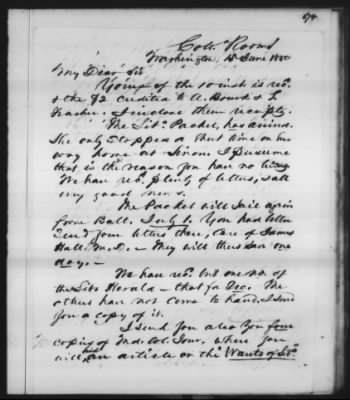 Colz. Rooms
Washington, 15 June 1850
My Dear Sir
Yours of the 10 inst is recd.
& the $2 credited to A. Bowd & L.
I enclose them receipts.
The Lib. Packet, has arrived.
She only stopped a short time on her
way home at Sinou. I presume
that is the reason you have no letters
We have recd. plenty of letters, & all
very good news.
The Packet will sail again
from Balt. July 1. You had better
send your letters there, care of James
Hall M.D. - They will thus save one
day. -
We have recd. but one no. of
the Liba Herald - that for Dec. The
others have not come to hand. I send
you a copy of it.
I send you also you four
copies of Md. Col. Jour. where you
will find an article on the Wants of Lib.